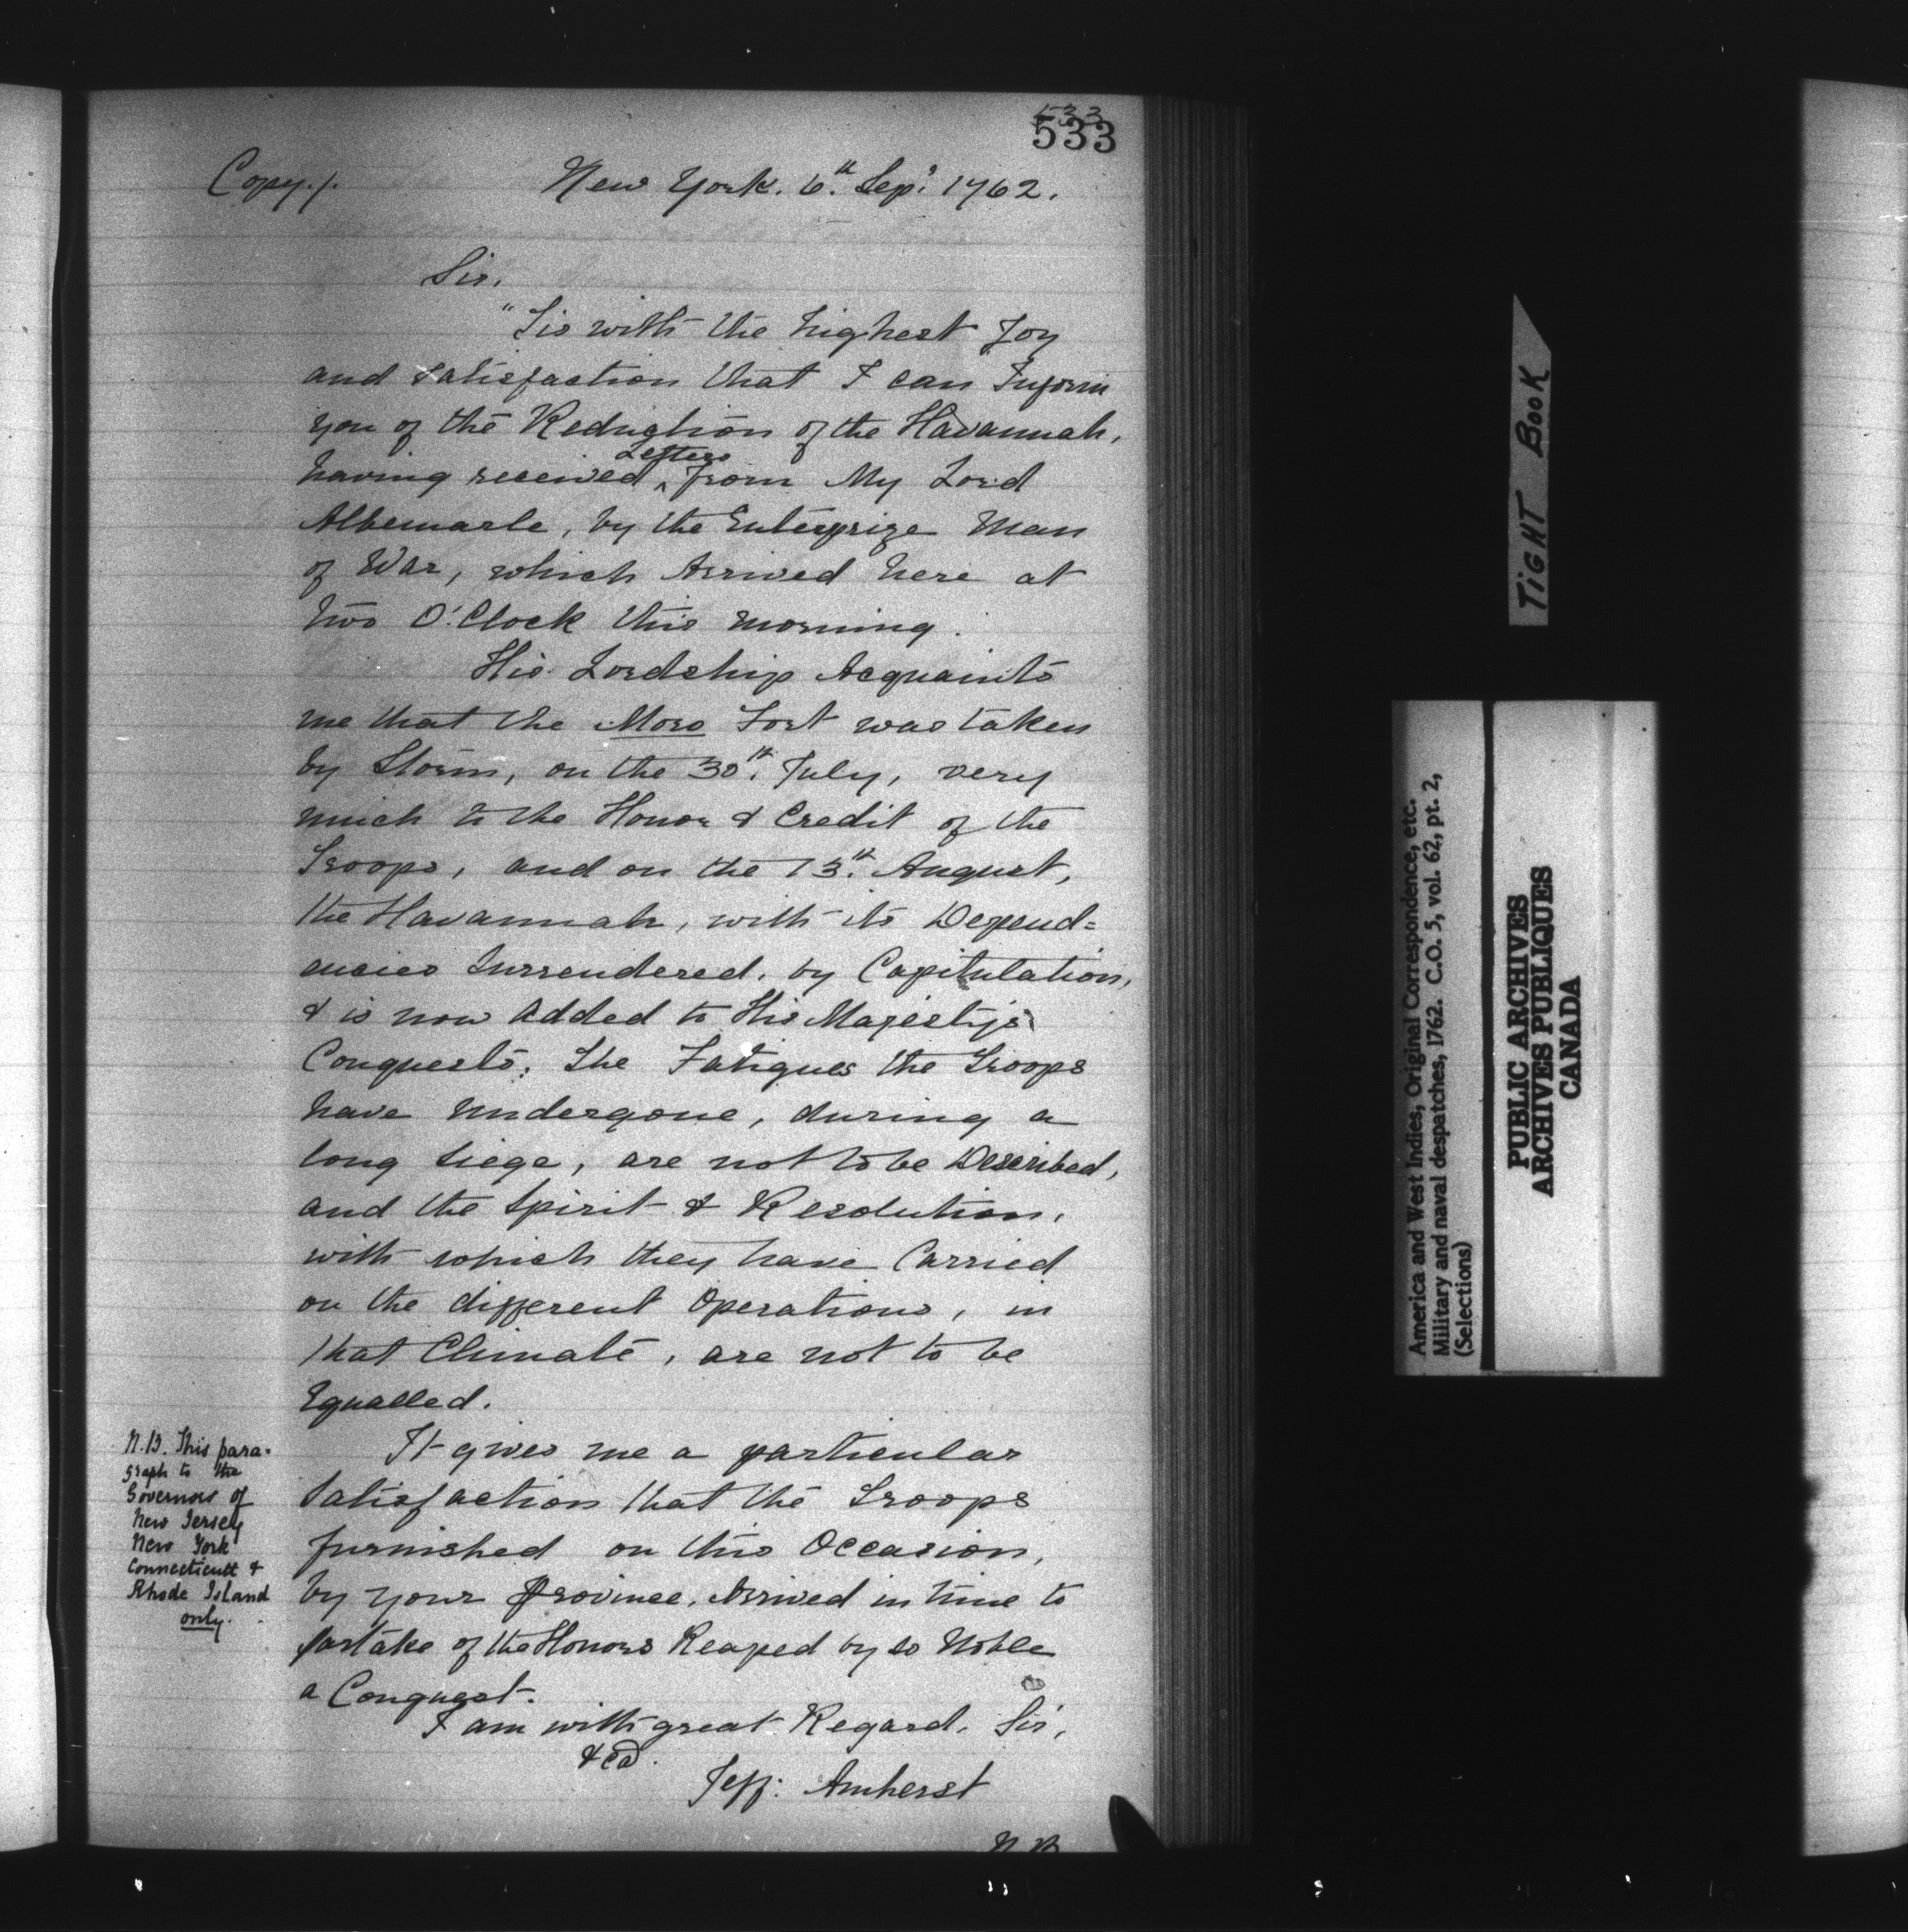 533
533
Copy./.
New York. 6.th Sep.r 1762.
Sir,
"Tis with the highest Joy
and Satisfaction that I can Inform
you of the Reduction of the Havannah,
having received ^Letters from My Lord
Albemarle, by the Enterprize Man
of War, which Arrived here at
two O'Clock this morning.
His Lordship Acquaints
me that the Moro Fort was taken
by Storm, on the 30th. July, very
much to the Honor & Credit of the
Troops, and on the 13th. August,
the Havannah, with its Depend=
encies Surrendered, by Capitulation,
& is now Added to His Majesty's
Conquests; The Fatigues the Troops
have undergone, during a
long Siege, are not to be Described,
and the Spirit & Resolution,
with which they have Carried
on the different Operations, in
that Climate, are not to be
Equalled.
It gives me a particular
Satisfaction that the Troops
furnished on this Occasion,
by your Province, Arrived in time to
partake of the Honors Reaped by so Noble
a Conquest.
I am with great Regard, Sir,
&ca.
Jeff: Amherst
N.B.
N.B. This para-
graph to the
Governors of
New Jersey
New York
Connecticutt &
Rhode Island
only.
TIGHT BOOK
America and West Indies, Original Correspondence, etc.
Military and naval despatches, 1762. C.O. 5, vol. 62, pt. 2,
(Selections)
PUBLIC ARCHIVES
ARCHIVES PUBLIQUES
CANADA